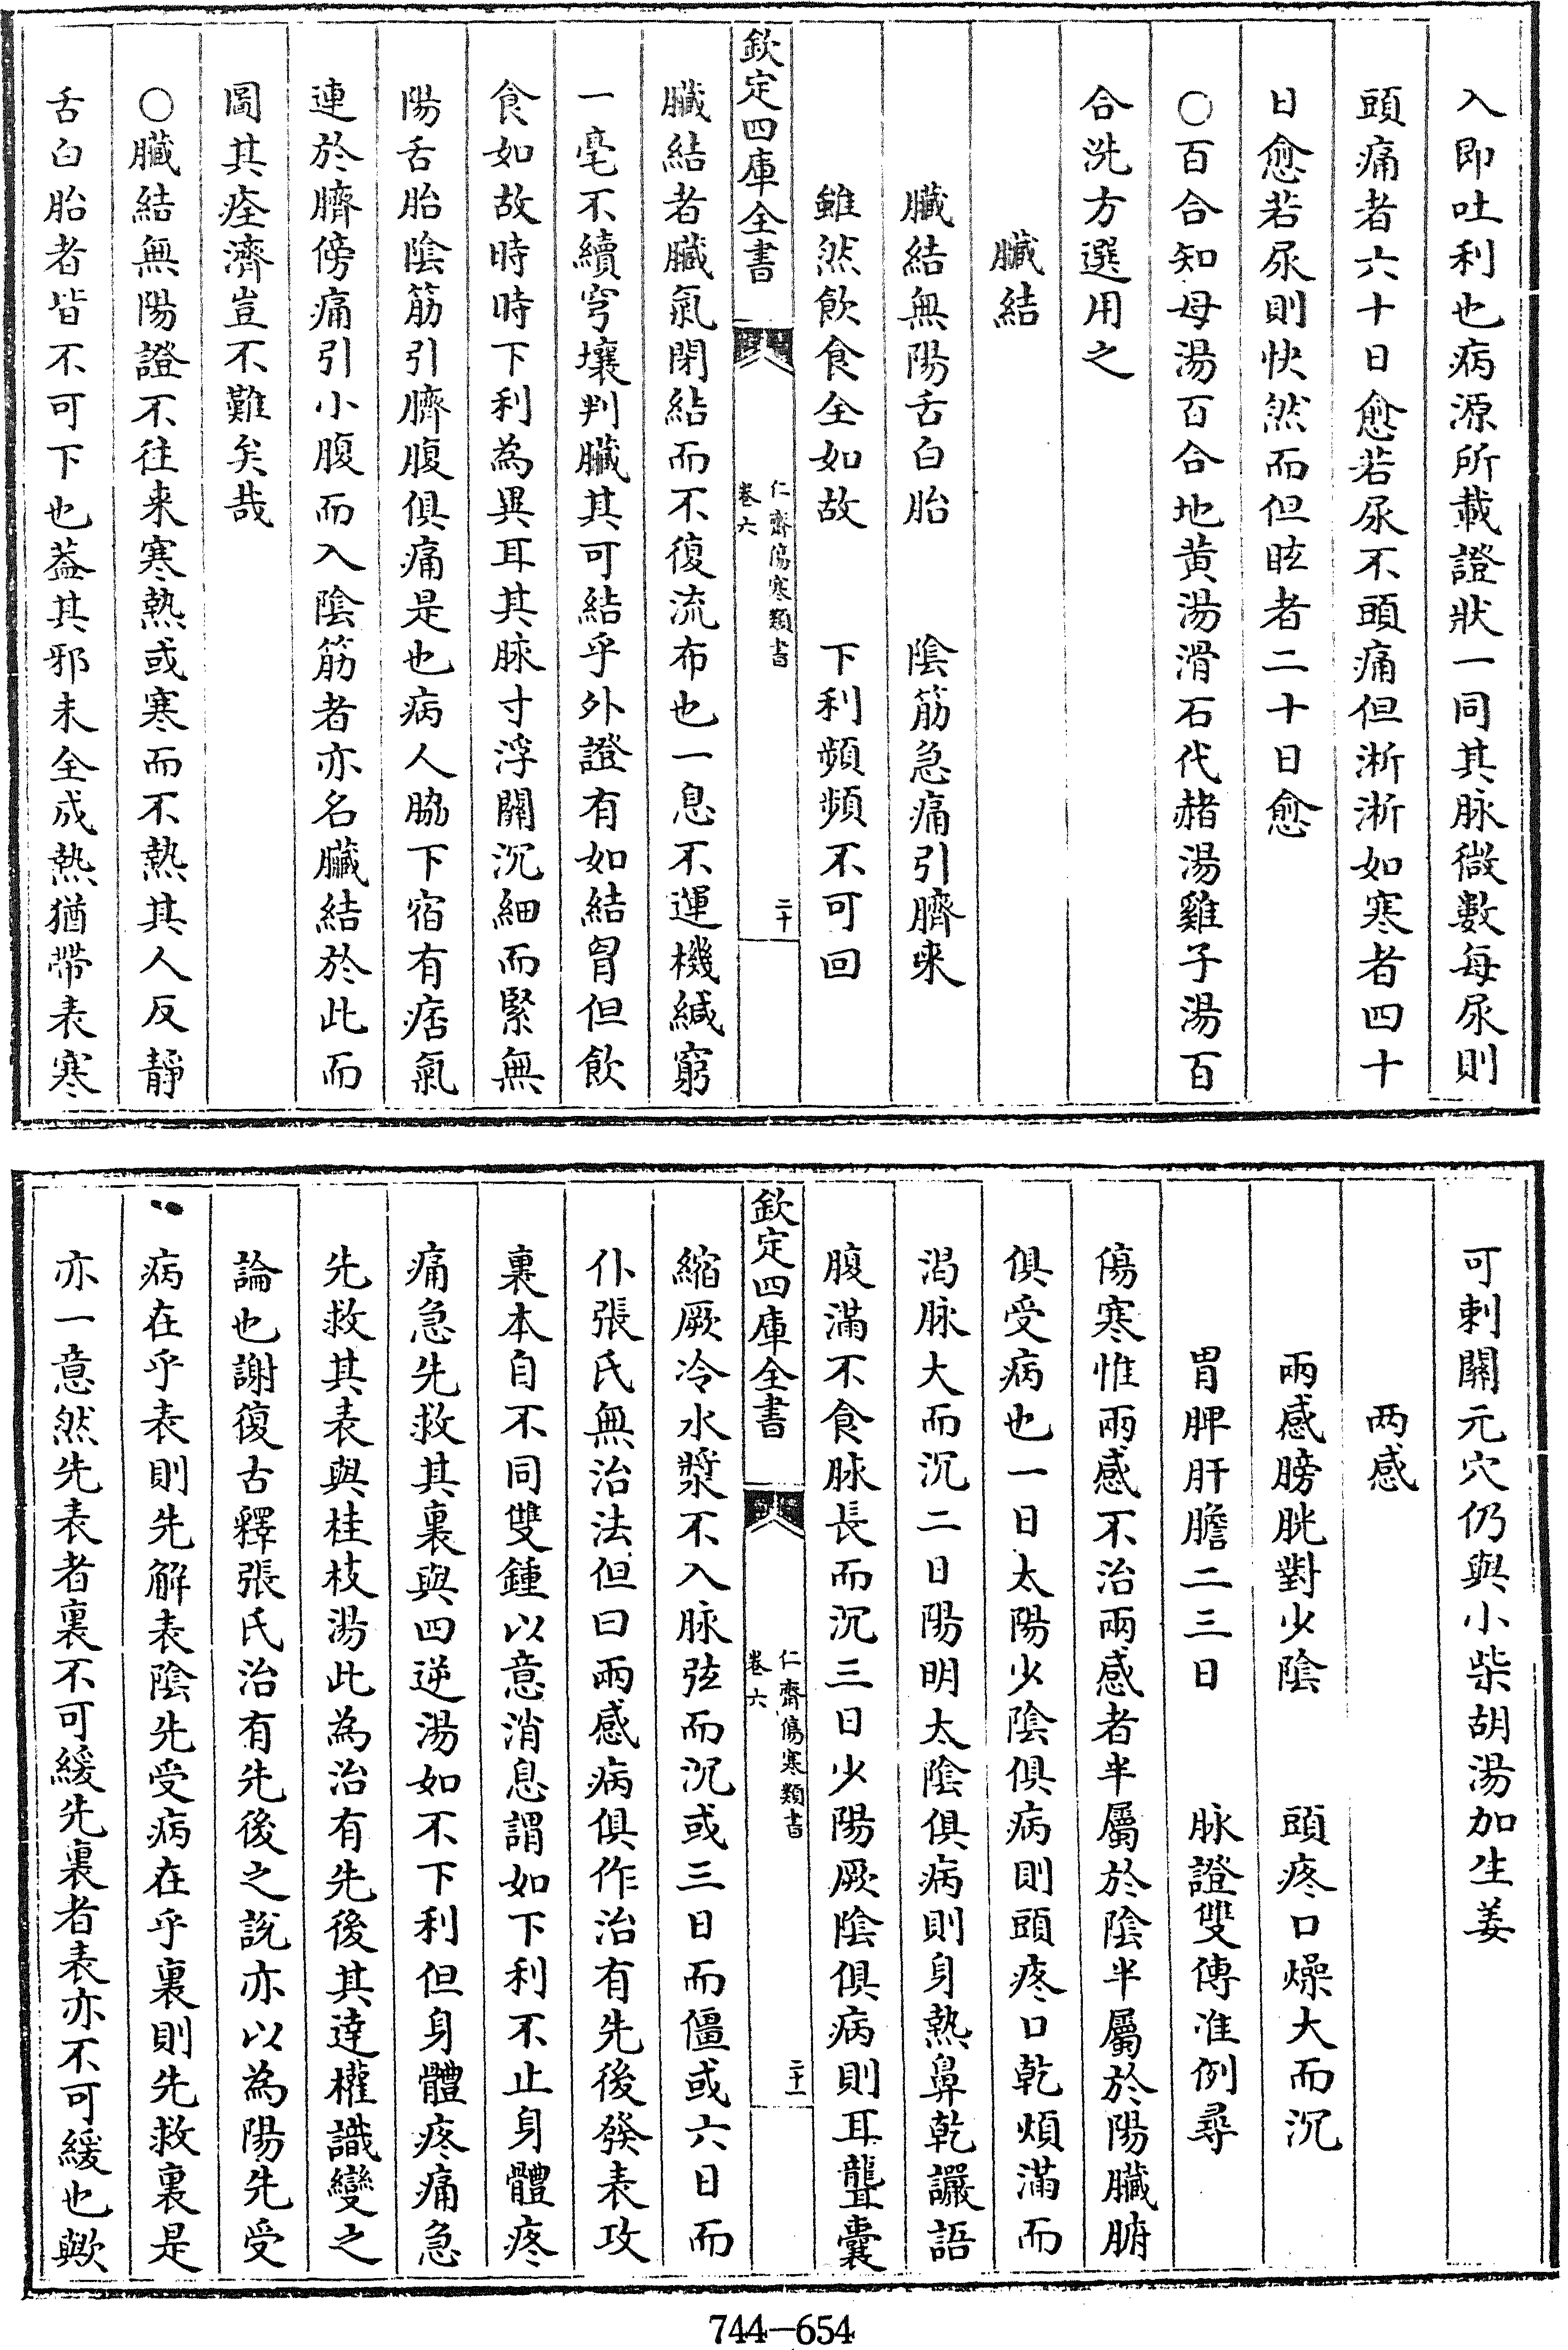 入即吐利也病源所載證狀一同其脉微數每尿則
頭痛者六十日愈若尿不頭痛但淅淅如寒者四十
日愈若尿則快然而但眩者二十日愈
○百合知母湯百合地黄湯滑石代赭湯雞子湯百
合洗方選用之
臓結
臓結無陽舌白胎　陰筋急痛引臍来
雖然飲食全如故　下利頻頻不可回
欽定四庫全書
仁齋傷寒類書
卷六
二十
臓結者臓氣閉結而不復流布也一息不運機緘窮
一毫不續穹壤判臓其可結乎外證有如結胷但飲
食如故時時下利為異耳其脉寸浮關沉細而緊無
陽舌胎陰筋引臍腹俱痛是也病人脇下宿有痞氣
連於臍傍痛引小腹而入陰筋者亦名臓結於此而
圖其痊濟豈不難矣哉
○臓結無陽證不往来寒熱或寒而不熱其人反靜
舌白胎者皆不可下也葢其邪未全成熱猶帶表寒
可刺關元穴仍與小柴胡湯加生姜
两感
兩感膀胱對少陰　頭疼口燥大而沉
胃脾肝膽二三日　脉證雙傳准例尋
傷寒惟兩感不治兩感者半屬於陰半屬於陽臓腑
俱受病也一日太陽少陰俱病則頭疼口乾煩滿而
渴脉大而沉二日陽明太陰俱病則身熱鼻乾讝語
腹滿不食脉長而沉三日少陽厥陰俱病則耳聾囊
欽定四庫全書
仁齋傷寒類書
卷六
二十一
縮厥冷水漿不入脉弦而沉或三日而僵或六日而
仆張氏無治法但曰兩感病俱作治有先後發表攻
裏本自不同雙鍾以意消息謂如下利不止身體疼
痛急先救其裏與四逆湯如不下利但身體疼痛急
先救其表與桂枝湯此為治有先後其達權識變之
論也謝復古釋張氏治有先後之說亦以為陽先受
病在乎表則先解表陰先受病在乎裏則先救裏是
亦一意然先表者裏不可緩先裏者表亦不可緩也歟
744-654